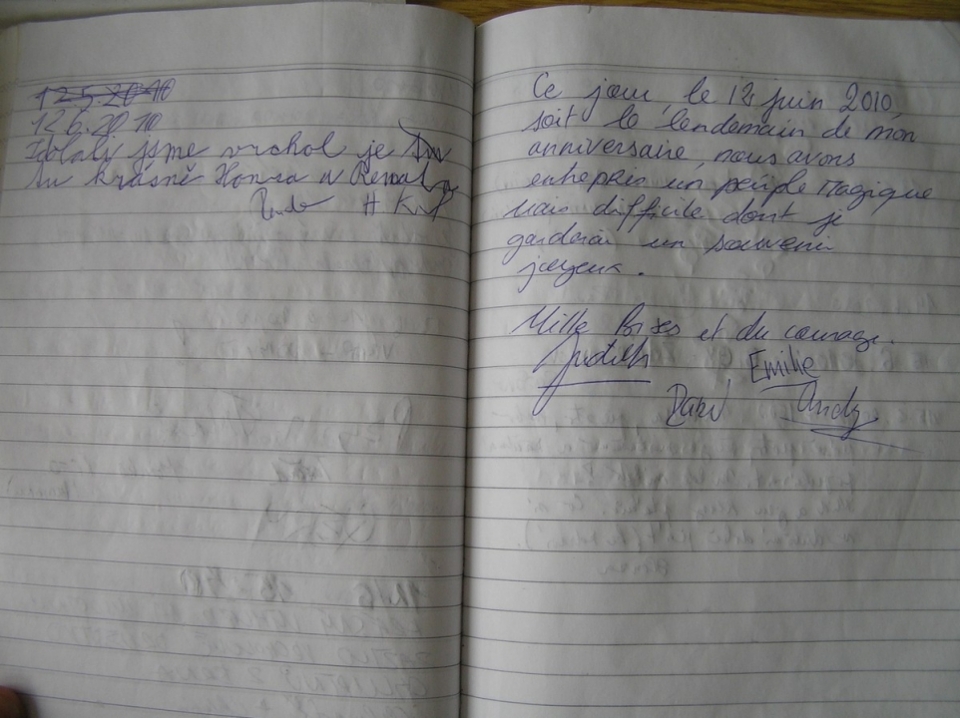 12.5.2010
12.6.2010
jsme vrchol je tu
tu krásně Honza a Renata
H K
Ce jour, le 12 juin 2010,
soit le lendemain de mon
anniversaire, nous avons
entrepris un périple magique
mais difficile dont je
garderai un souvenir
joyeux.
Mille Bises et du courage.
Judith Emilie
Andy